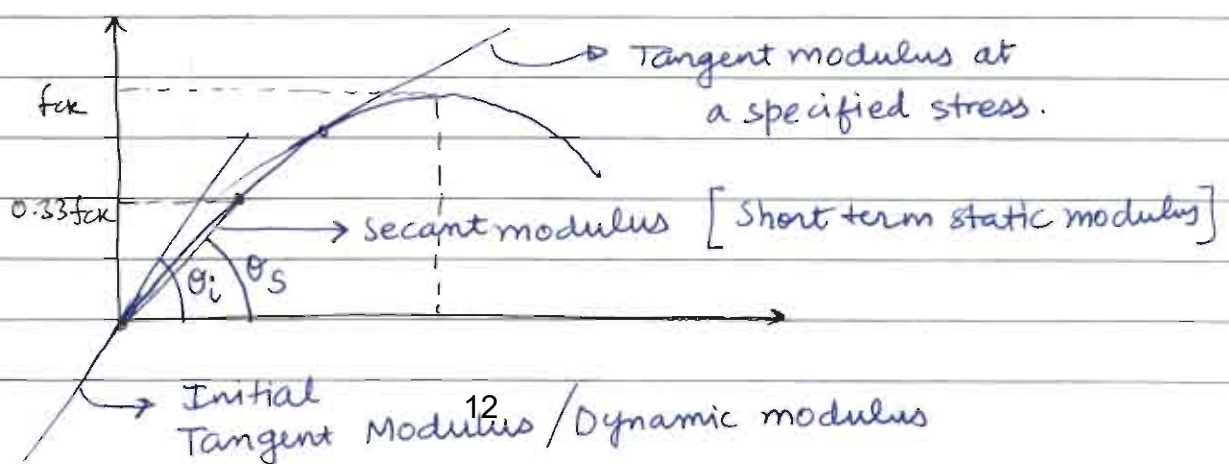 Tangent modulus at
a specified stress.
fck
0.33fck
secant modulus [Short term static modulus]
θi
θs
Initial
Tangent Modulus / Dynamic modulus
12